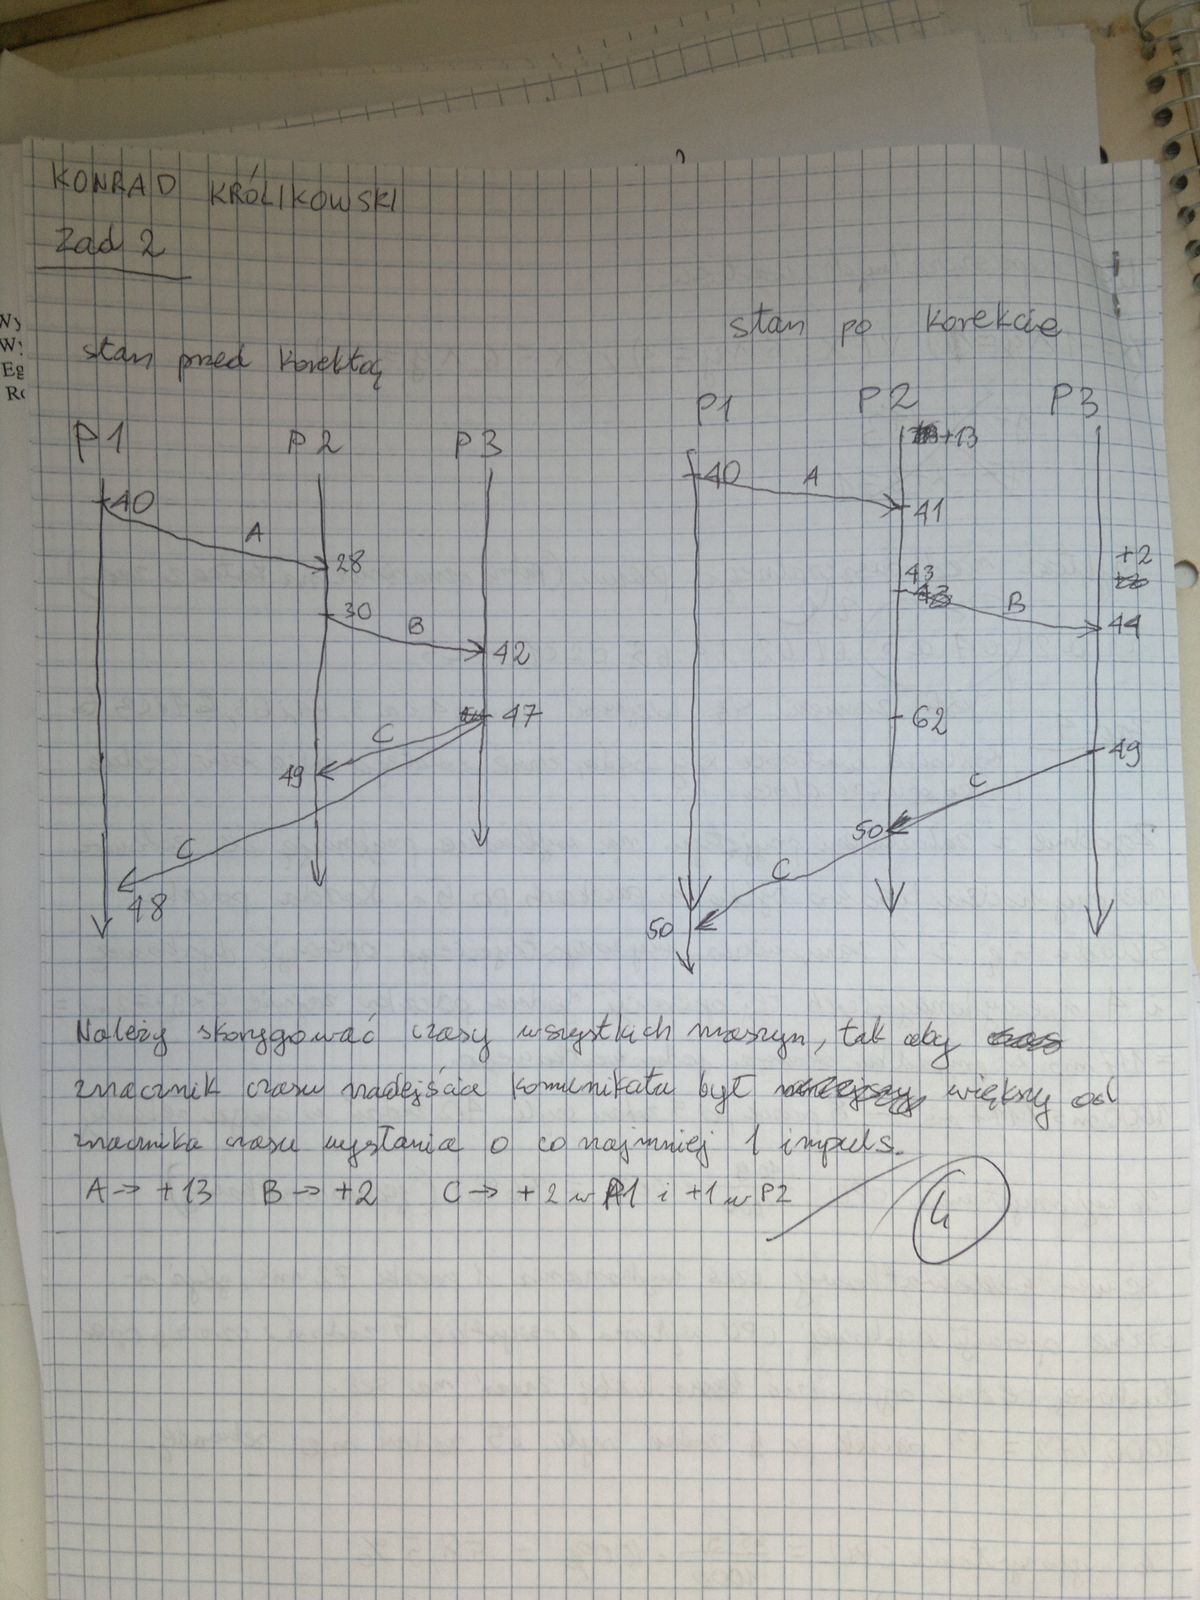 KONRAD KRÓLIKOWSKI
Zad 2
Wy
Wy
Eg
Ro
stan przed korektą
P1 P2 P3
40
A
28
30
B
42
47
C
49
C
48
stan po korekcie
P1 P2 P3
+13
40
A
41
+2
43
B
44
62
49
C
50
C
50
Należy skorygować czasy wszystkich maszyn, tak aby
znacznik czasu nadejścia komunikatu był większy od
znacznika czasu wysłania o co najmniej 1 impuls.
A → +13 B → +2 C → +2 w P1 i +1 w P2
4